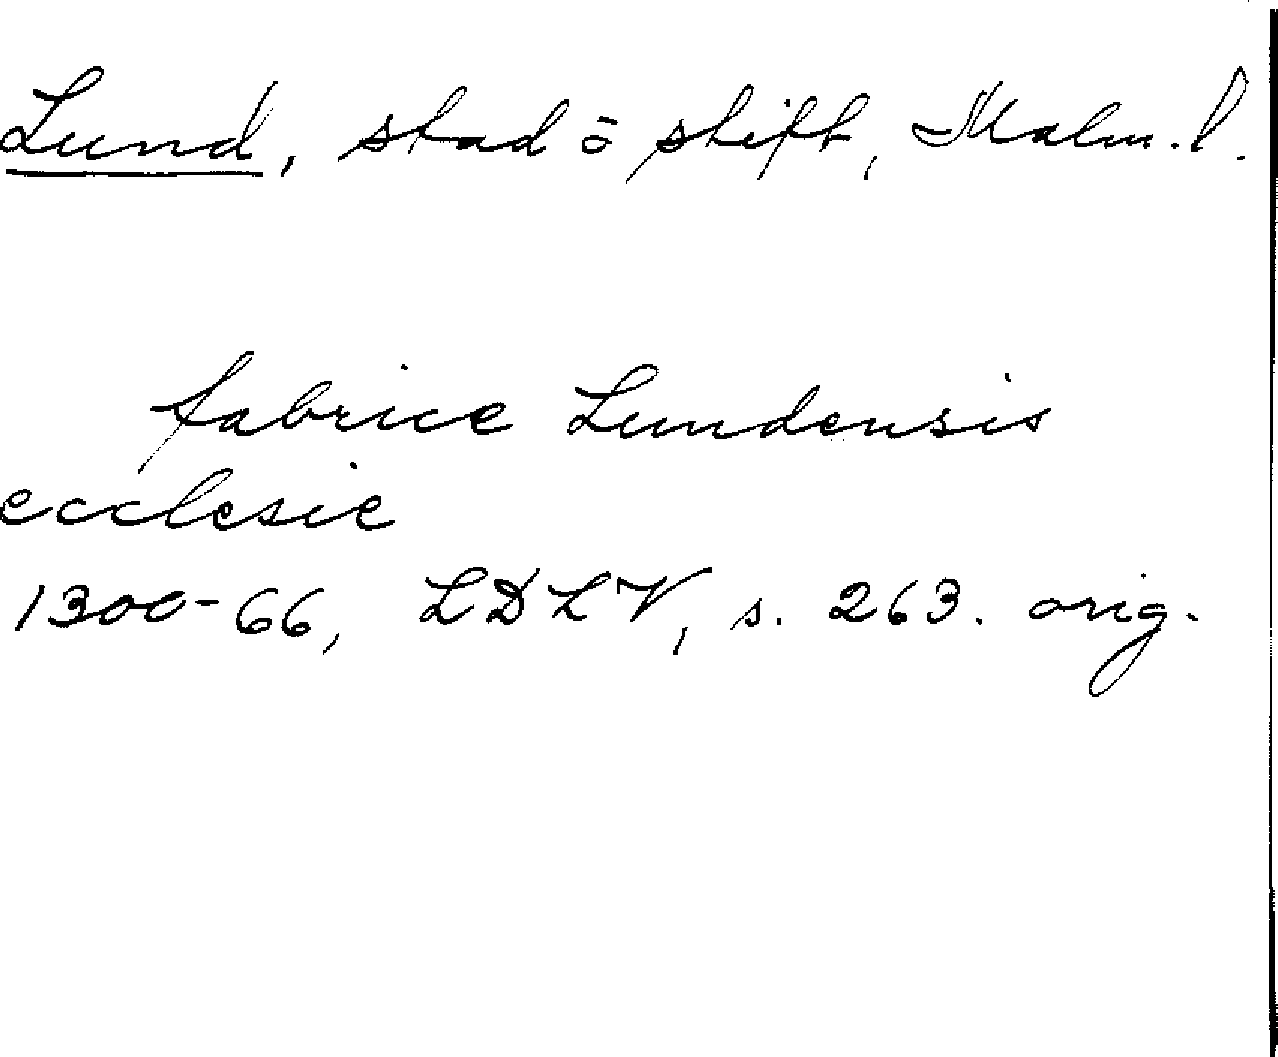 Lund, stad o stift, Malm. l.
fabrice Lundensis
ecclesie
1300-66, LDLV, s. 263. orig.